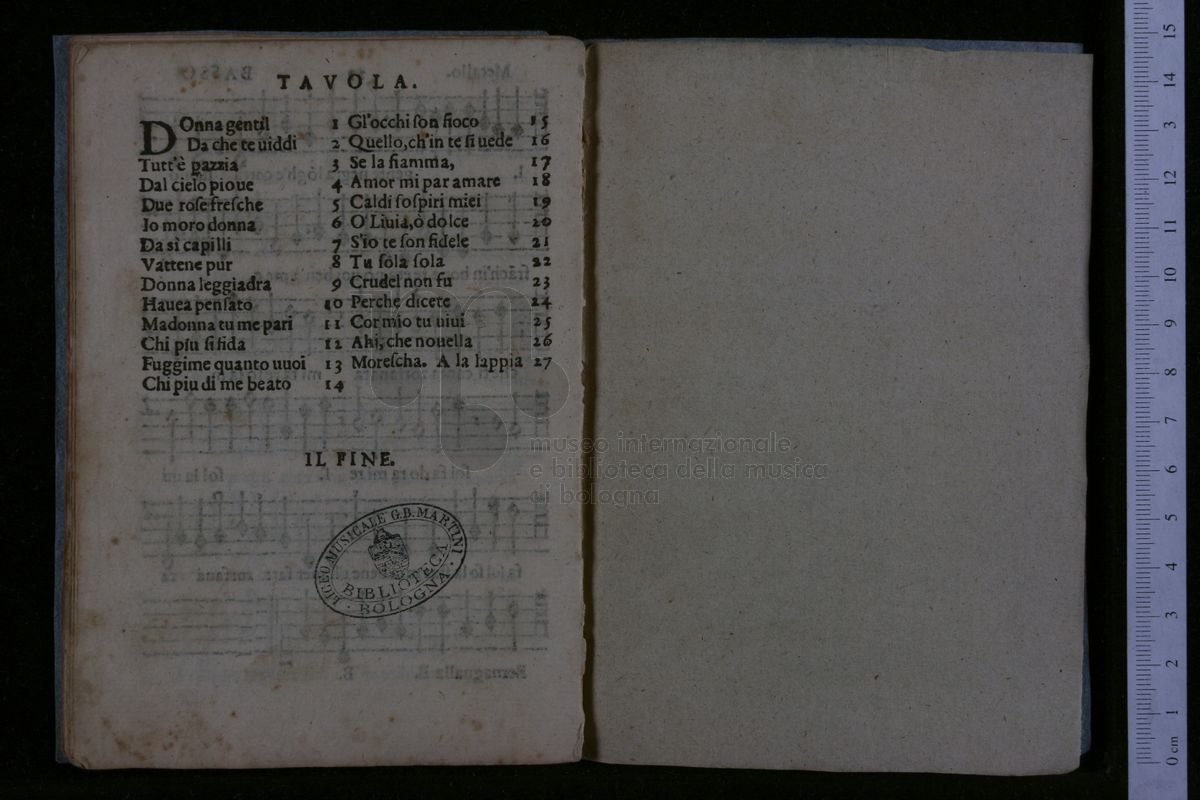 TAVOLA.
DOnna gentil 1
Da che te uiddi 2
Tutt'è pazzia 3
Dal cielo pioue 4
Due rose fresche 5
Io moro donna 6
Da sì capilli 7
Vattene pur 8
Donna leggiadra 9
Hauea pensato 10
Madonna tu me pari 11
Chi piu si fida 12
Fuggime quanto uuoi 13
Chi piu di me beato 14
Gl'occhi son fioco 15
Quello, ch'in te si uede 16
Se la fiamma, 17
Amor mi par amare 18
Caldi sospiri miei 19
O Liuia, ò dolce 20
S'io te son fidele 21
Tu sola sola 22
Crudel non fu 23
Perche dicete 24
Cor mio tu uiui 25
Ahi, che nouella 26
Morescha. A la lappia 27
IL FINE.
LICEO MUSICALE G.B. MARTINI
BIBLIOTECA
· BOLOGNA ·
museo internazionale
e biblioteca della musica
di bologna
0 cm 1 2 3 4 5 6 7 8 9 10 11 12 13 14 15